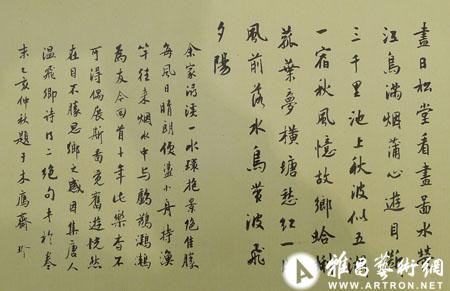 盡日松堂看畫圖水
江鳥滿烟蒲心遊目斷
三千里池上秋波似五湖
一宿秋風憶故鄉蛤
菰葉夢橫塘愁紅一
風前落水鳥帶波飛
夕陽
余家潯溪一水環抱景絶佳勝
每風日晴朗便盪小舟持漁
竿往來烟水中与鸕鶿鸂鶒
為友今回首十年此樂杳不
可得偶展斯卷覓舊遊恍然
在目不勝思鄉之感因集唐人
温飛卿詩得二絶句書於卷
末乙亥仲秋題于木鷹齋
雅昌藝術網
WWW.ARTRON.NET